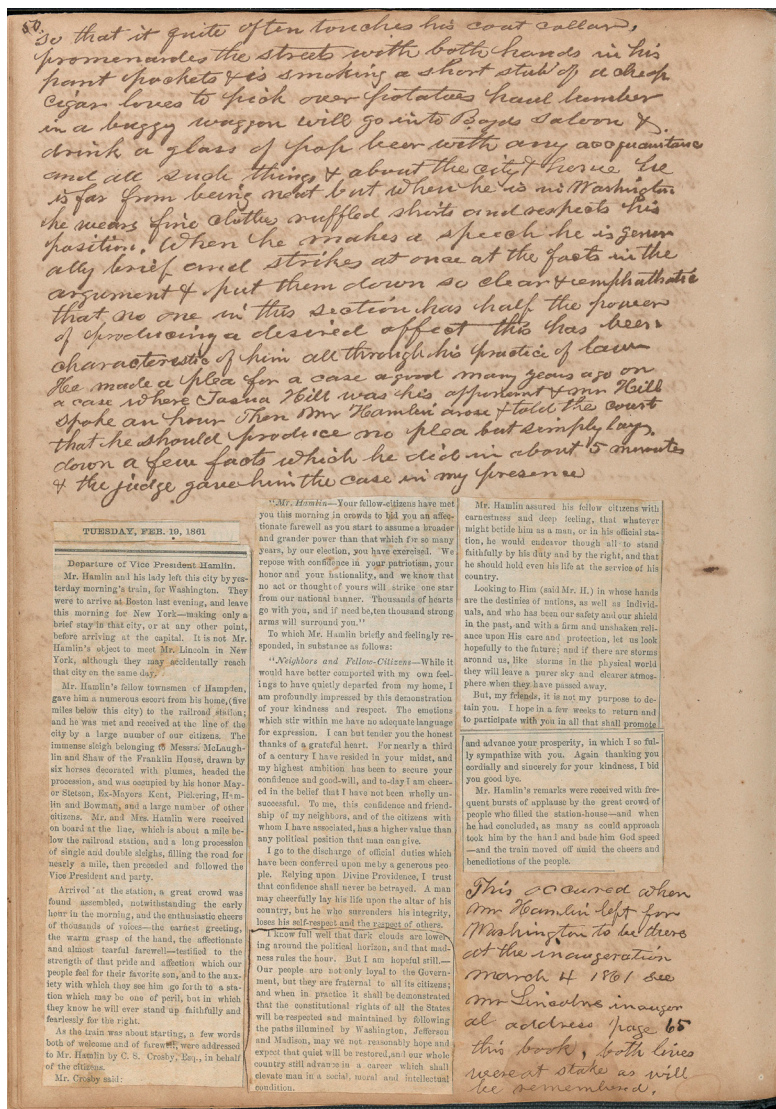 50.
so that it quite often touches his coat collar,
promenardes the streets with both hands in his
pant pockets & is smoking a short stub of a cheap
cigar loves to pick over potatoes haul lumber
in a buggy waggon will go into Boyds Saloon &
drink a glass of pop beer with any accquaintance
and all such things & about the city & home he
is far from being neat but when he is in Washington
he wears fine clothes ruffled shirts and respects his
position. When he makes a speech he is gener
ally brief and strikes at once at the facts in the
argument & put them down so clear & emphathatic
that no one in this section has half the power
of producing a desired affect this has been
characteristic of him all through his practice of law
He made a plea for a case a good many years ago on
a case where Jasua Hill was his opponent & mr Hill
spoke an hour Then Mr Hamlin arose & told the court
that he should produce no plea but simply lays
down a few facts which he did in about 5 minutes
& the judge gave him the case in my presence
TUESDAY, FEB. 19, 1861
Departure of Vice President Hamlin.
Mr. Hamlin and his lady left this city by yes-
terday morning's train, for Washington. They
were to arrive at Boston last evening, and leave
this morning for New York—making only a
brief stay in that city, or at any other point,
before arriving at the capital. It is not Mr.
Hamlin's object to meet Mr. Lincoln in New
York, although they may accidentally reach
that city on the same day.
Mr. Hamlin's fellow townsmen of Hampden,
gave him a numerous escort from his home, (five
miles below this city) to the railroad station;
and he was met and received at the line of the
city by a large number of our citizens. The
immense sleigh belonging to Messrs. McLaugh-
lin and Shaw of the Franklin House, drawn by
six horses decorated with plumes, headed the
procession, and was occupied by his honor May-
or Stetson, Ex-Mayors Kent, Pickering, Ham-
lin and Bowman, and a large number of other
citizens. Mr. and Mrs. Hamlin were received
on board at the line, which is about a mile be-
low the railroad station, and a long procession
of single and double sleighs, filling the road for
nearly a mile, then preceded and followed the
Vice President and party.
Arrived at the station, a great crowd was
found assembled, notwithstanding the early
hour in the morning, and the enthusiastic cheers
of thousands of voices—the earnest greeting,
the warm grasp of the hand, the affectionate
and almost tearful farewell—testified to the
strength of that pride and affection which our
people feel for their favorite son, and to the anx-
iety with which they see him go forth to a sta-
tion which may be one of peril, but in which
they know he will ever stand up faithfully and
fearlessly for the right.
As the train was about starting, a few words
both of welcome and of farewell, were addressed
to Mr. Hamlin by C. S. Crosby, Esq., in behalf
of the citizens.
Mr. Crosby said:
"Mr. Hamlin—Your fellow-citizens have met
you this morning in crowds to bid you an affec-
tionate farewell as you start to assume a broader
and grander power than that which for so many
years, by our election, you have exercised. We
repose with confidence in your patriotism, your
honor and your nationality, and we know that
no act or thought of yours will strike one star
from our national banner. Thousands of hearts
go with you, and if need be, ten thousand strong
arms will surround you."
To which Mr. Hamlin briefly and feelingly re-
sponded, in substance as follows:
"Neighbors and Fellow-Citizens—While it
would have better comported with my own feel-
ings to have quietly departed from my home, I
am profoundly impressed by this demonstration
of your kindness and respect. The emotions
which stir within me have no adequate language
for expression. I can but tender you the honest
thanks of a grateful heart. For nearly a third
of a century I have resided in your midst, and
my highest ambition has been to secure your
confidence and good-will, and to-day I am cheer-
ed in the belief that I have not been wholly un-
successful. To me, this confidence and friend-
ship of my neighbors, and of the citizens with
whom I have associated, has a higher value than
any political position that man can give.
I go to the discharge of official duties which
have been conferred upon me by a generous peo-
ple. Relying upon Divine Providence, I trust
that confidence shall never be betrayed. A man
may cheerfully lay his life upon the altar of his
country, but he who surrenders his integrity,
loses his self-respect and the respect of others.
I know full well that dark clouds are lower-
ing around the political horizon, and that mad-
ness rules the hour. But I am hopeful still.—
Our people are not only loyal to the Govern-
ment, but they are fraternal to all its citizens;
and when in practice it shall be demonstrated
that the constitutional rights of all the States
will be respected and maintained by following
the paths illumined by Washington, Jefferson
and Madison, may we not reasonably hope and
expect that quiet will be restored, and our whole
country still advance in a career which shall
elevate man in a social, moral and intellectual
condition.
Mr. Hamlin assured his fellow citizens with
earnestness and deep feeling, that whatever
might betide him as a man, or in his official sta-
tion, he would endeavor though all to stand
faithfully by his duty and by the right, and that
he should hold even his life at the service of his
country.
Looking to Him (said Mr. H.) in whose hands
are the destinies of nations, as well as individ-
uals, and who has been our safety and our shield
in the past, and with a firm and unshaken reli-
ance upon His care and protection, let us look
hopefully to the future; and if there are storms
around us, like storms in the physical world
they will leave a purer sky and clearer atmos-
phere when they have passed away.
But, my friends, it is not my purpose to de-
tain you. I hope in a few weeks to return and
to participate with you in all that shall promote
and advance your prosperity, in which I so ful-
ly sympathize with you. Again thanking you
cordially and sincerely for your kindness, I bid
you good bye.
Mr. Hamlin's remarks were received with fre-
quent bursts of applause by the great crowd of
people who filled the station-house—and when
he had concluded, as many as could approach
took him by the hand and bade him God speed
—and the train moved off amid the cheers and
benedictions of the people.
This occured when
Mr Hamlin left for
Washington to be there
at the inaugeration
march 4 1861 see
Mr Lincolns inaugur
al address page 65
this book, both lives
were at stake as will
be remembered.